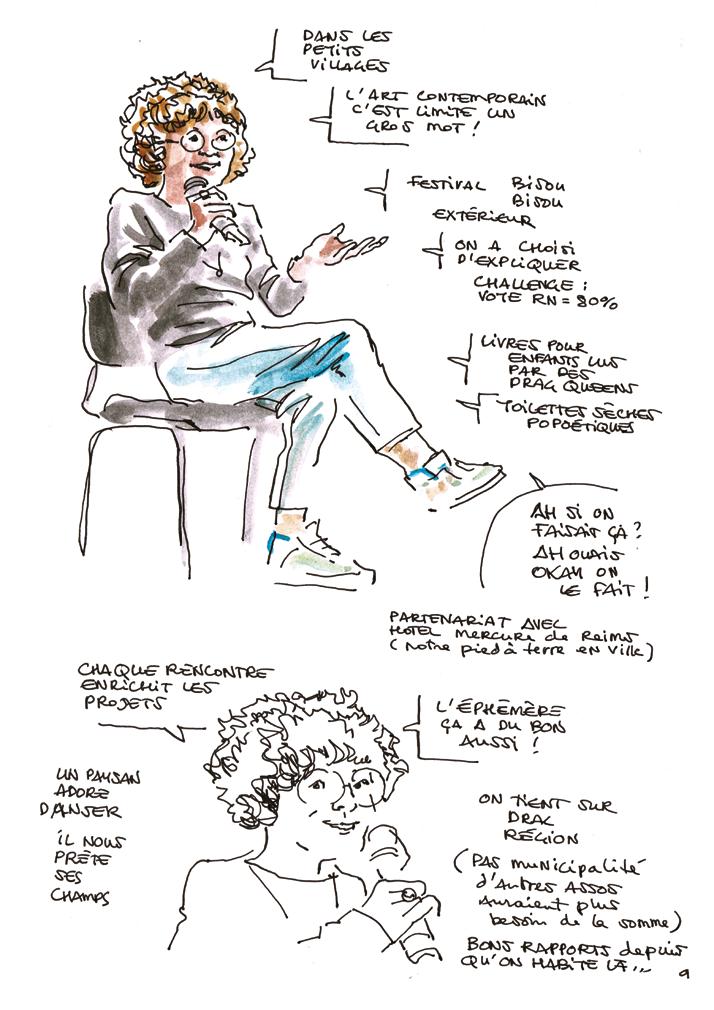 DANS LES
PETITS
VILLAGES
L'ART CONTEMPORAIN
C'EST LIMITE UN
GROS MOT !
FESTIVAL BISOU
BISOU
EXTÉRIEUR
ON A CHOISI
D'EXPLIQUER
CHALLENGE :
VOTE RN = 80%
LIVRES POUR
ENFANTS LUS
PAR DES
DRAG QUEENS
TOILETTES SÈCHES
POPOÉTIQUES
AH SI ON
FAISAIT ÇA ?
AH OUAIS
OKAY ON
LE FAIT !
PARTENARIAT AVEC
HOTEL MERCURE de Reims
(notre pied à terre en ville)
CHAQUE RENCONTRE
ENRICHIT LES
PROJETS
L'ÉPHÉMÈRE
ÇA A DU BON
AUSSI !
UN PAYSAN
ADORE
DANSER
IL NOUS
PRÊTE
SES
CHAMPS
ON TIENT SUR
DRAC
RÉGION
(PAS municipalité
d'Autres ASSOS
Auraient plus
besoin de la somme)
BONS RAPPORTS depuis
QU'ON HABITE LÀ...
9